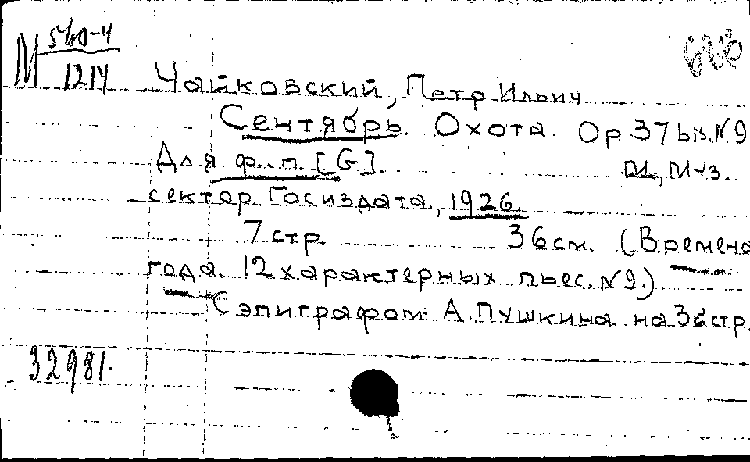 М 560-4
1214
Чайковский, Петр Ильич
Сентябрь. Охота. Op 37 bis. N 9
Для ф.-п. [G]. М., Муз.
сектор Госиздата, 1926.
7 стр. 36 см. (Времена
года. 12 характерных пьес. N 9.)
С эпиграфом А. Пушкина на 3й стр.
32981.